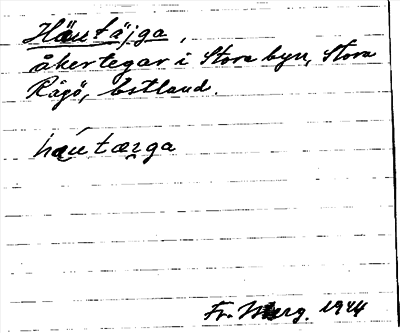 Häutäjga,
åkertegar i Stora byn, Stora
Rågö, Estland.
häutærga
Fr. 1944